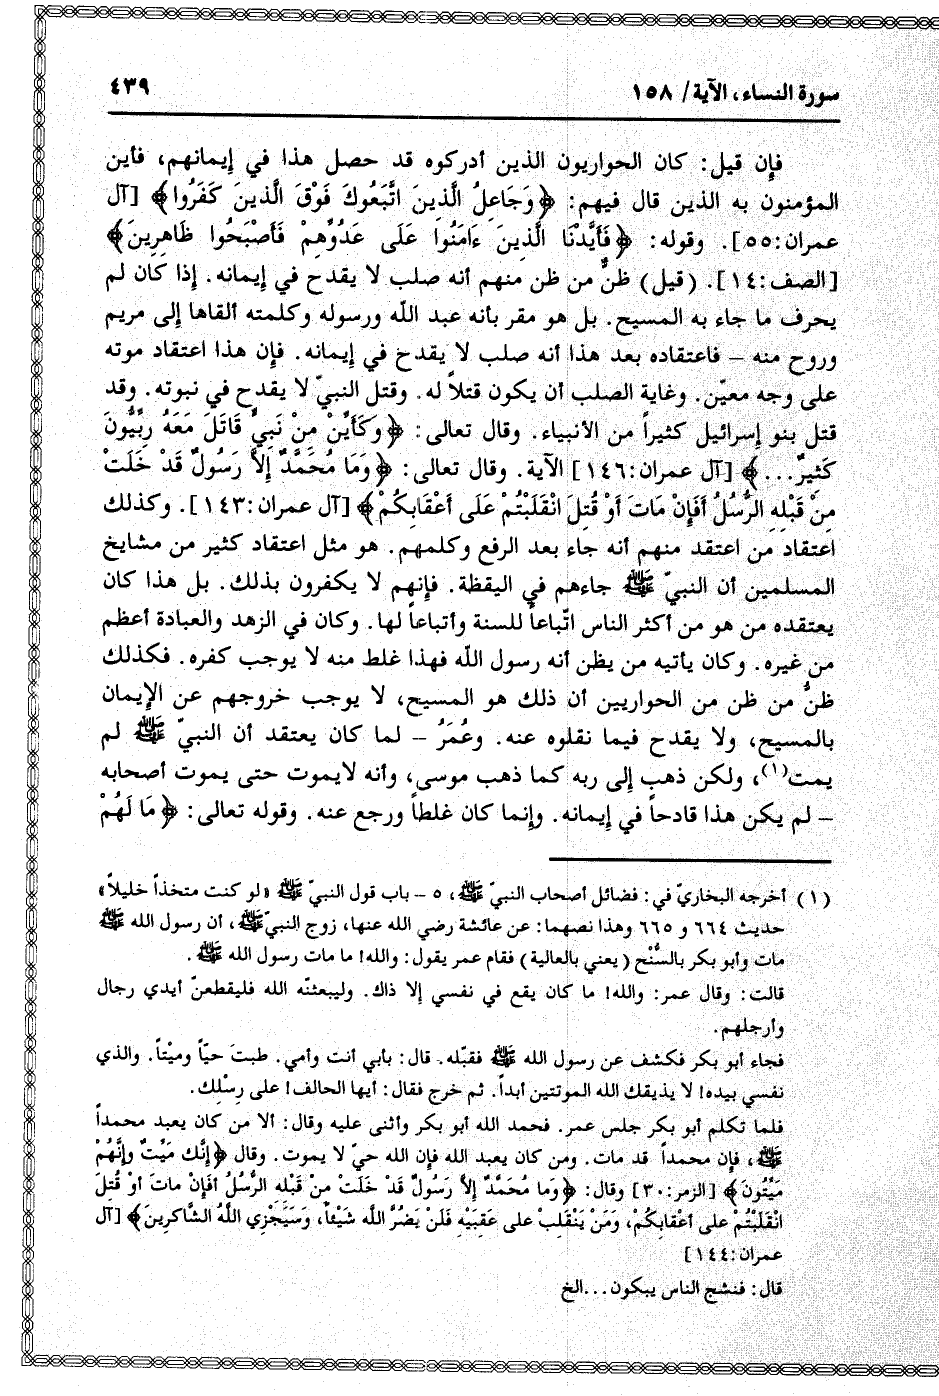 سورة النساء، الآية/ ١٥٨
٤٣٩
فإن قيل: كان الحواريون الذين أدركوه قد حصل هذا في إيمانهم، فأين
المؤمنون به الذين قال فيهم: ﴿وَجَاعِلُ الَّذِينَ اتَّبَعُوكَ فَوْقَ الَّذِينَ كَفَرُوا﴾ [آل
عمران:٥٥]. وقوله: ﴿فَأَيَّدْنَا الَّذِينَ ءَامَنُوا عَلَى عَدُوِّهِمْ فَأَصْبَحُوا ظَاهِرِينَ﴾
[الصف:١٤]. (قيل) ظنٌّ من ظن منهم أنه صلب لا يقدح في إيمانه. إذا كان لم
يحرف ما جاء به المسيح. بل هو مقر بأنه عبد اللّه ورسوله وكلمته ألقاها إلى مريم
وروح منه – فاعتقاده بعد هذا أنه صلب لا يقدح في إيمانه. فإن هذا اعتقاد موته
على وجه معيّن. وغاية الصلب أن يكون قتلاً له. وقتل النبيّ لا يقدح في نبوته. وقد
قتل بنو إسرائيل كثيراً من الأنبياء. وقال تعالى: ﴿وَكَأَيِّنْ مِنْ نَبِيٍّ قَاتَلَ مَعَهُ رِبِّيُّونَ
كَثِيرٌ...﴾ [آل عمران:١٤٦] الآية. وقال تعالى: ﴿وَمَا مُحَمَّدٌ إِلاَّ رَسُولٌ قَدْ خَلَتْ
مِنْ قَبْلِهِ الرُّسُلُ أَفَإِنْ مَاتَ أَوْ قُتِلَ انْقَلَبْتُمْ عَلَى أَعْقَابِكُمْ﴾ [آل عمران:١٤٣]. وكذلك
اعتقاد من اعتقد منهم أنه جاء بعد الرفع وكلمهم. هو مثل اعتقاد كثير من مشايخ
المسلمين أن النبيّ ﷺ جاءهم في اليقظة. فإنهم لا يكفرون بذلك. بل هذا كان
يعتقده من هو من أكثر الناس اتّباعاً للسنة وأتباعاً لها. وكان في الزهد والعبادة أعظم
من غيره. وكان يأتيه من يظن أنه رسول اللّه فهذا غلط منه لا يوجب كفره. فكذلك
ظنُّ من ظن من الحواريين أن ذلك هو المسيح، لا يوجب خروجهم عن الإيمان
بالمسيح، ولا يقدح فيما نقلوه عنه. وعُمَرُ – لما كان يعتقد أن النبيّ ﷺ لم
يمت(١)، ولكن ذهب إلى ربه كما ذهب موسى، وأنه لايموت حتى يموت أصحابه
– لم يكن هذا قادحاً في إيمانه. وإنما كان غلطاً ورجع عنه. وقوله تعالى: ﴿مَا لَهُمْ
(١) أخرجه البخاريّ في: فضائل أصحاب النبيّ ﷺ، ٥ – باب قول النبيّ ﷺ «لو كنت متخذاً خليلاً»
حديث ٦٦٤ و ٦٦٥ وهذا نصهما: عن عائشة رضي الله عنها، زوج النبيّ ﷺ، أن رسول الله ﷺ
مات وأبو بكر بالسُّنْح (يعني بالعالية) فقام عمر يقول: والله! ما مات رسول الله ﷺ.
قالت: وقال عمر: والله! ما كان يقع في نفسي إلا ذاك. وليبعثنّه الله فليقطعنّ أيدي رجال
وأرجلهم.
فجاء أبو بكر فكشف عن رسول الله ﷺ فقبّله. قال: بأبي أنت وأمي. طبتَ حيّاً وميْتاً. والذي
نفسي بيده! لا يذيقك الله الموتتين أبداً. ثم خرج فقال: أيها الحالف! على رِسْلِك.
فلما تكلم أبو بكر جلس عمر. فحمد الله أبو بكر وأثنى عليه وقال: ألا من كان يعبد محمداً
ﷺ، فإن محمداً قد مات. ومن كان يعبد الله فإن الله حيّ لا يموت. وقال ﴿إِنَّك مَيِّتٌ وإِنَّهُمْ
مَيِّتُونَ﴾ [الزمر:٣٠] وقال: ﴿وَما مُحَمَّدٌ إِلاَّ رَسُولٌ قَدْ خَلَتْ مِنْ قَبْلِهِ الرُّسُلُ أَفَإِنْ ماتَ أوْ قُتِلَ
انْقَلَبْتُمْ على أَعْقابِكُمْ، وَمَنْ يَنْقَلِبْ على عَقِبَيْهِ فَلَنْ يَضُرَّ اللّه شَيْئاً، وَسَيَجْزِي اللَّهُ الشَّاكِرِينَ﴾ [آل
عمران:١٤٤]
قال: فنشج الناس يبكون...الخ